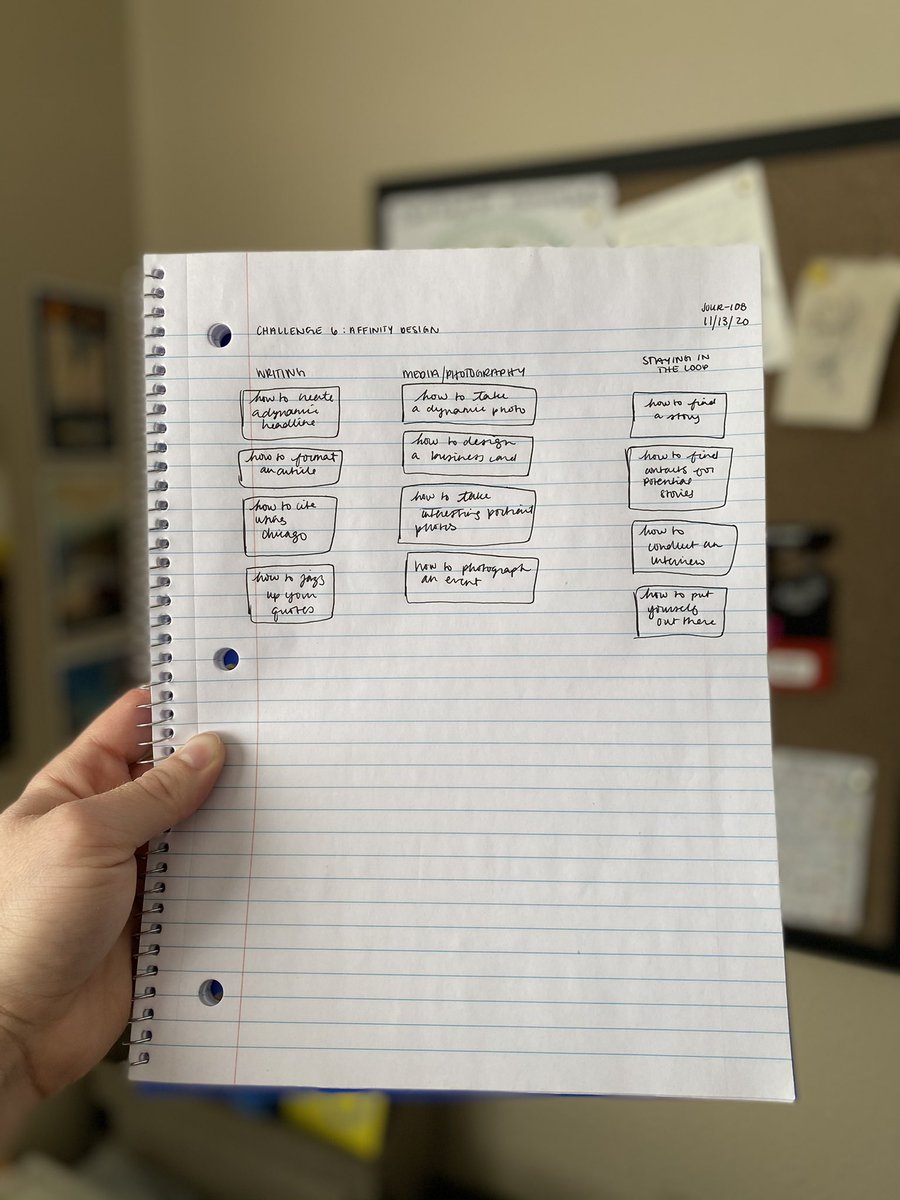 JOUR-108
11/13/20
CHALLENGE 6: AFFINITY DESIGN
WRITING
how to create
a dynamic
headline
how to format
an article
how to cite
using
chicago
how to jazz
up your
quotes
MEDIA/PHOTOGRAPHY
how to take
a dynamic photo
how to design
a business card
how to take
interesting portrait
photos
how to photograph
an event
STAYING IN
THE LOOP
how to find
a story
how to find
contacts for
potential
stories
how to
conduct an
interview
how to put
yourself
out there